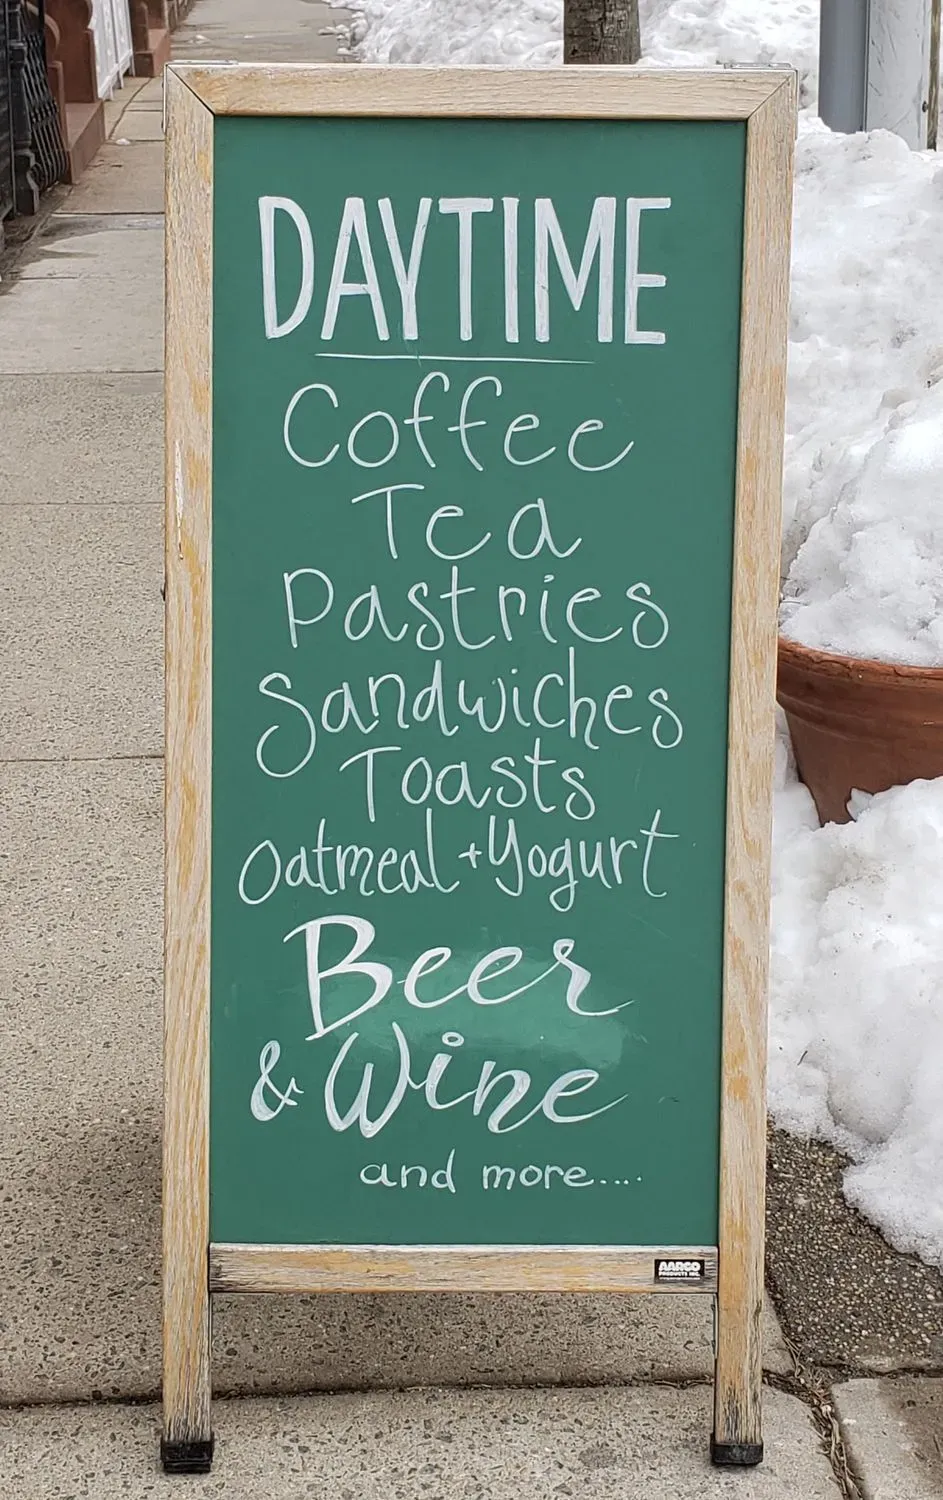 DAYTIME
Coffee
Tea
Pastries
Sandwiches
Toasts
Oatmeal + Yogurt
Beer
& Wine
and more....
AARCO
PRODUCTS INC.